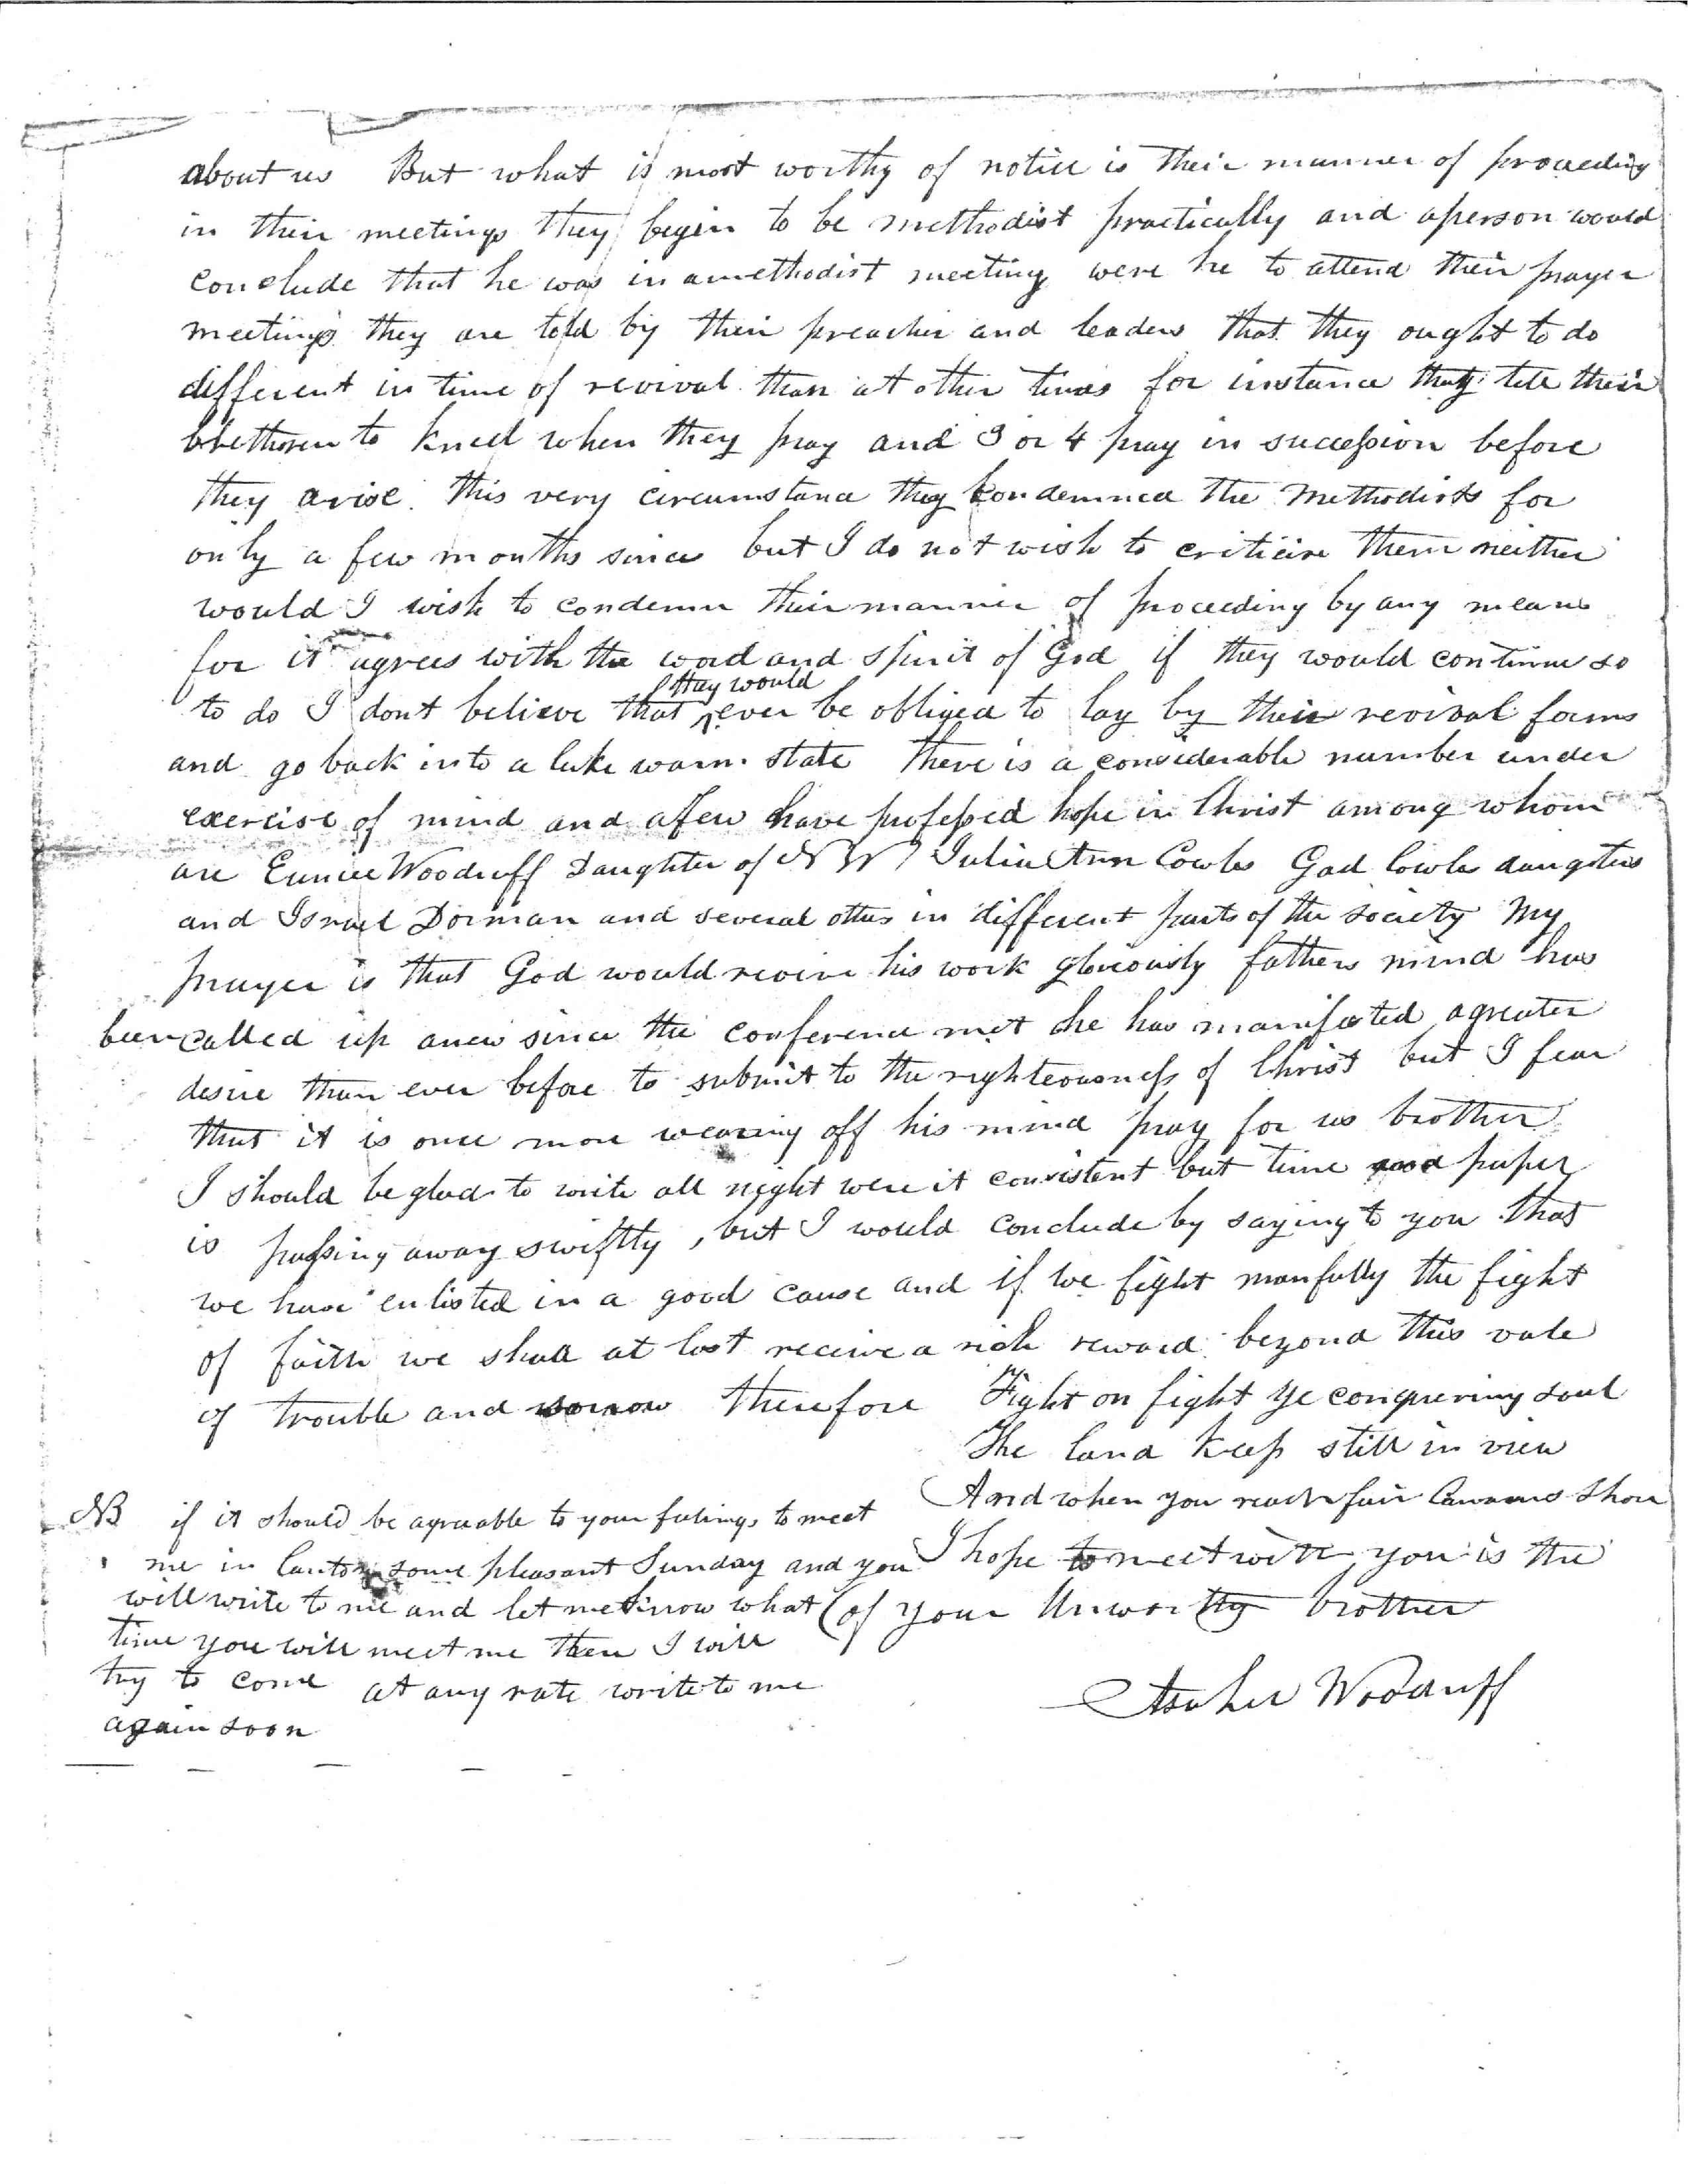 about us But what is most worthy of notice is their manner of proceeding
in their meetings they begin to be methodist practically and aperson would
conclude that he was in amethodist meeting were he to attend their prayer
meetings they are told by their preacher and leaders that they ought to do
different in time of revival than at other times for instance they tell their
brethoren to kneel when they pray and 3 or 4 pray in succession before
they arise. this very circumstance they condemned the Methodists for
only a few months since but I do not wish to criticise them neither
would I wish to condemn their manner of proceeding by any means
for it agrees with the word and spirit of God if they would continue so
to do I dont believe that they would ever be obliged to lay by their revival forms
and go back into a luke warm state there is a considerable number under
exercise of mind and afew have professed hope in Christ among whom
are Eunice Woodruff Daughter of N W / Julia Ann Cowles Gad Cowles daugters
and Israel Dorman and several others in different parts of the society My
prayer is that God would revive his work gloriously fathers mind has
been called up anew since the conference met he has manifested agreater
desire than ever before to submit to the righteousness of Christ but I fear
that it is once more wearing off his mind pray for us brother
I should be glad to write all night were it consistent but time and paper
is passing away swiftly, but I would conclude by saying to you that
we have enlisted in a good cause and if we fight manfully the fight
of faith we shall at last receive a rich reward beyond this vale
of trouble and sorrow therefore Fight on fight ye conquering soul
The land keep still in view
And when you reach fair Canaans Shore
I hope to meet with you is the
(of your Unworthy brother
Asahel Woodruff
NB if it should be agreeable to your feelings to meet
me in Canton some pleasant Sunday and you
will write to me and let me know what
time you will meet me then I will
try to come at any rate write to me
again soon